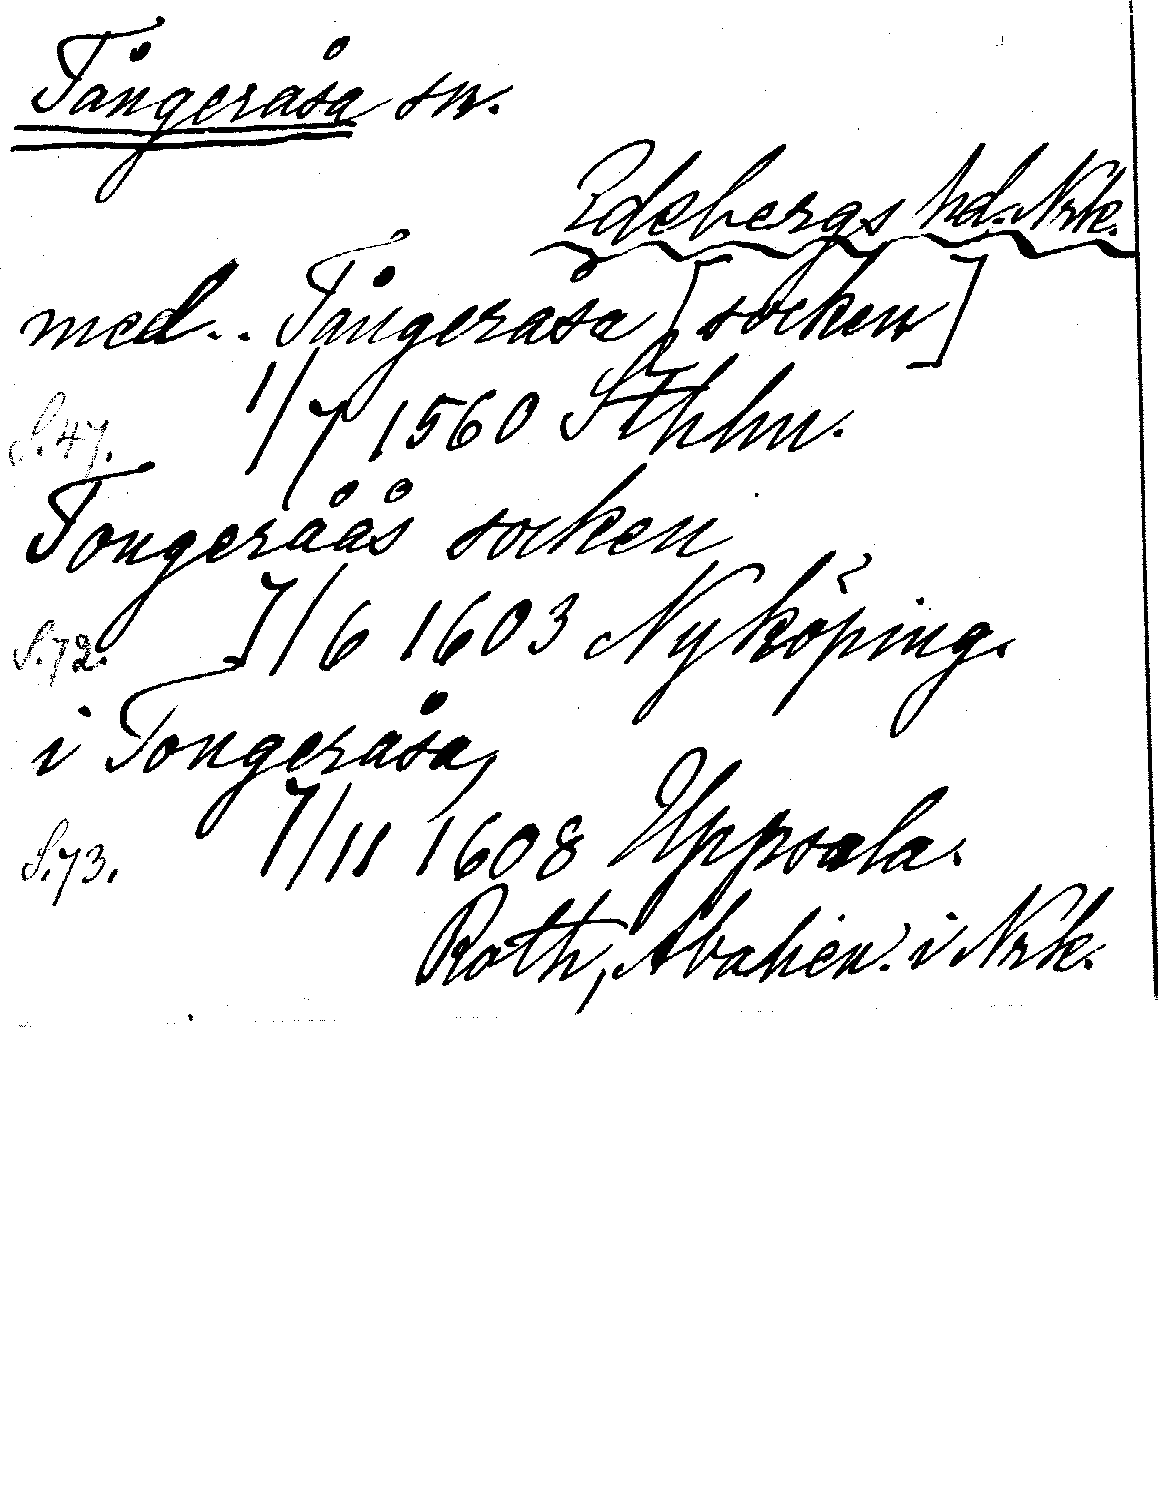 Tångeråsa sn.
Edsbergs hd. Nrk.
med.. Tångeråsa [socken]
S.47. 1/7 1560 Sthlm.
Tongeråås socken
S.72. 7/6 1603 Nyköping.
i Tongeråsa,
S.73. 7/11 1608 Uppsala.
Roth, i Nrk.